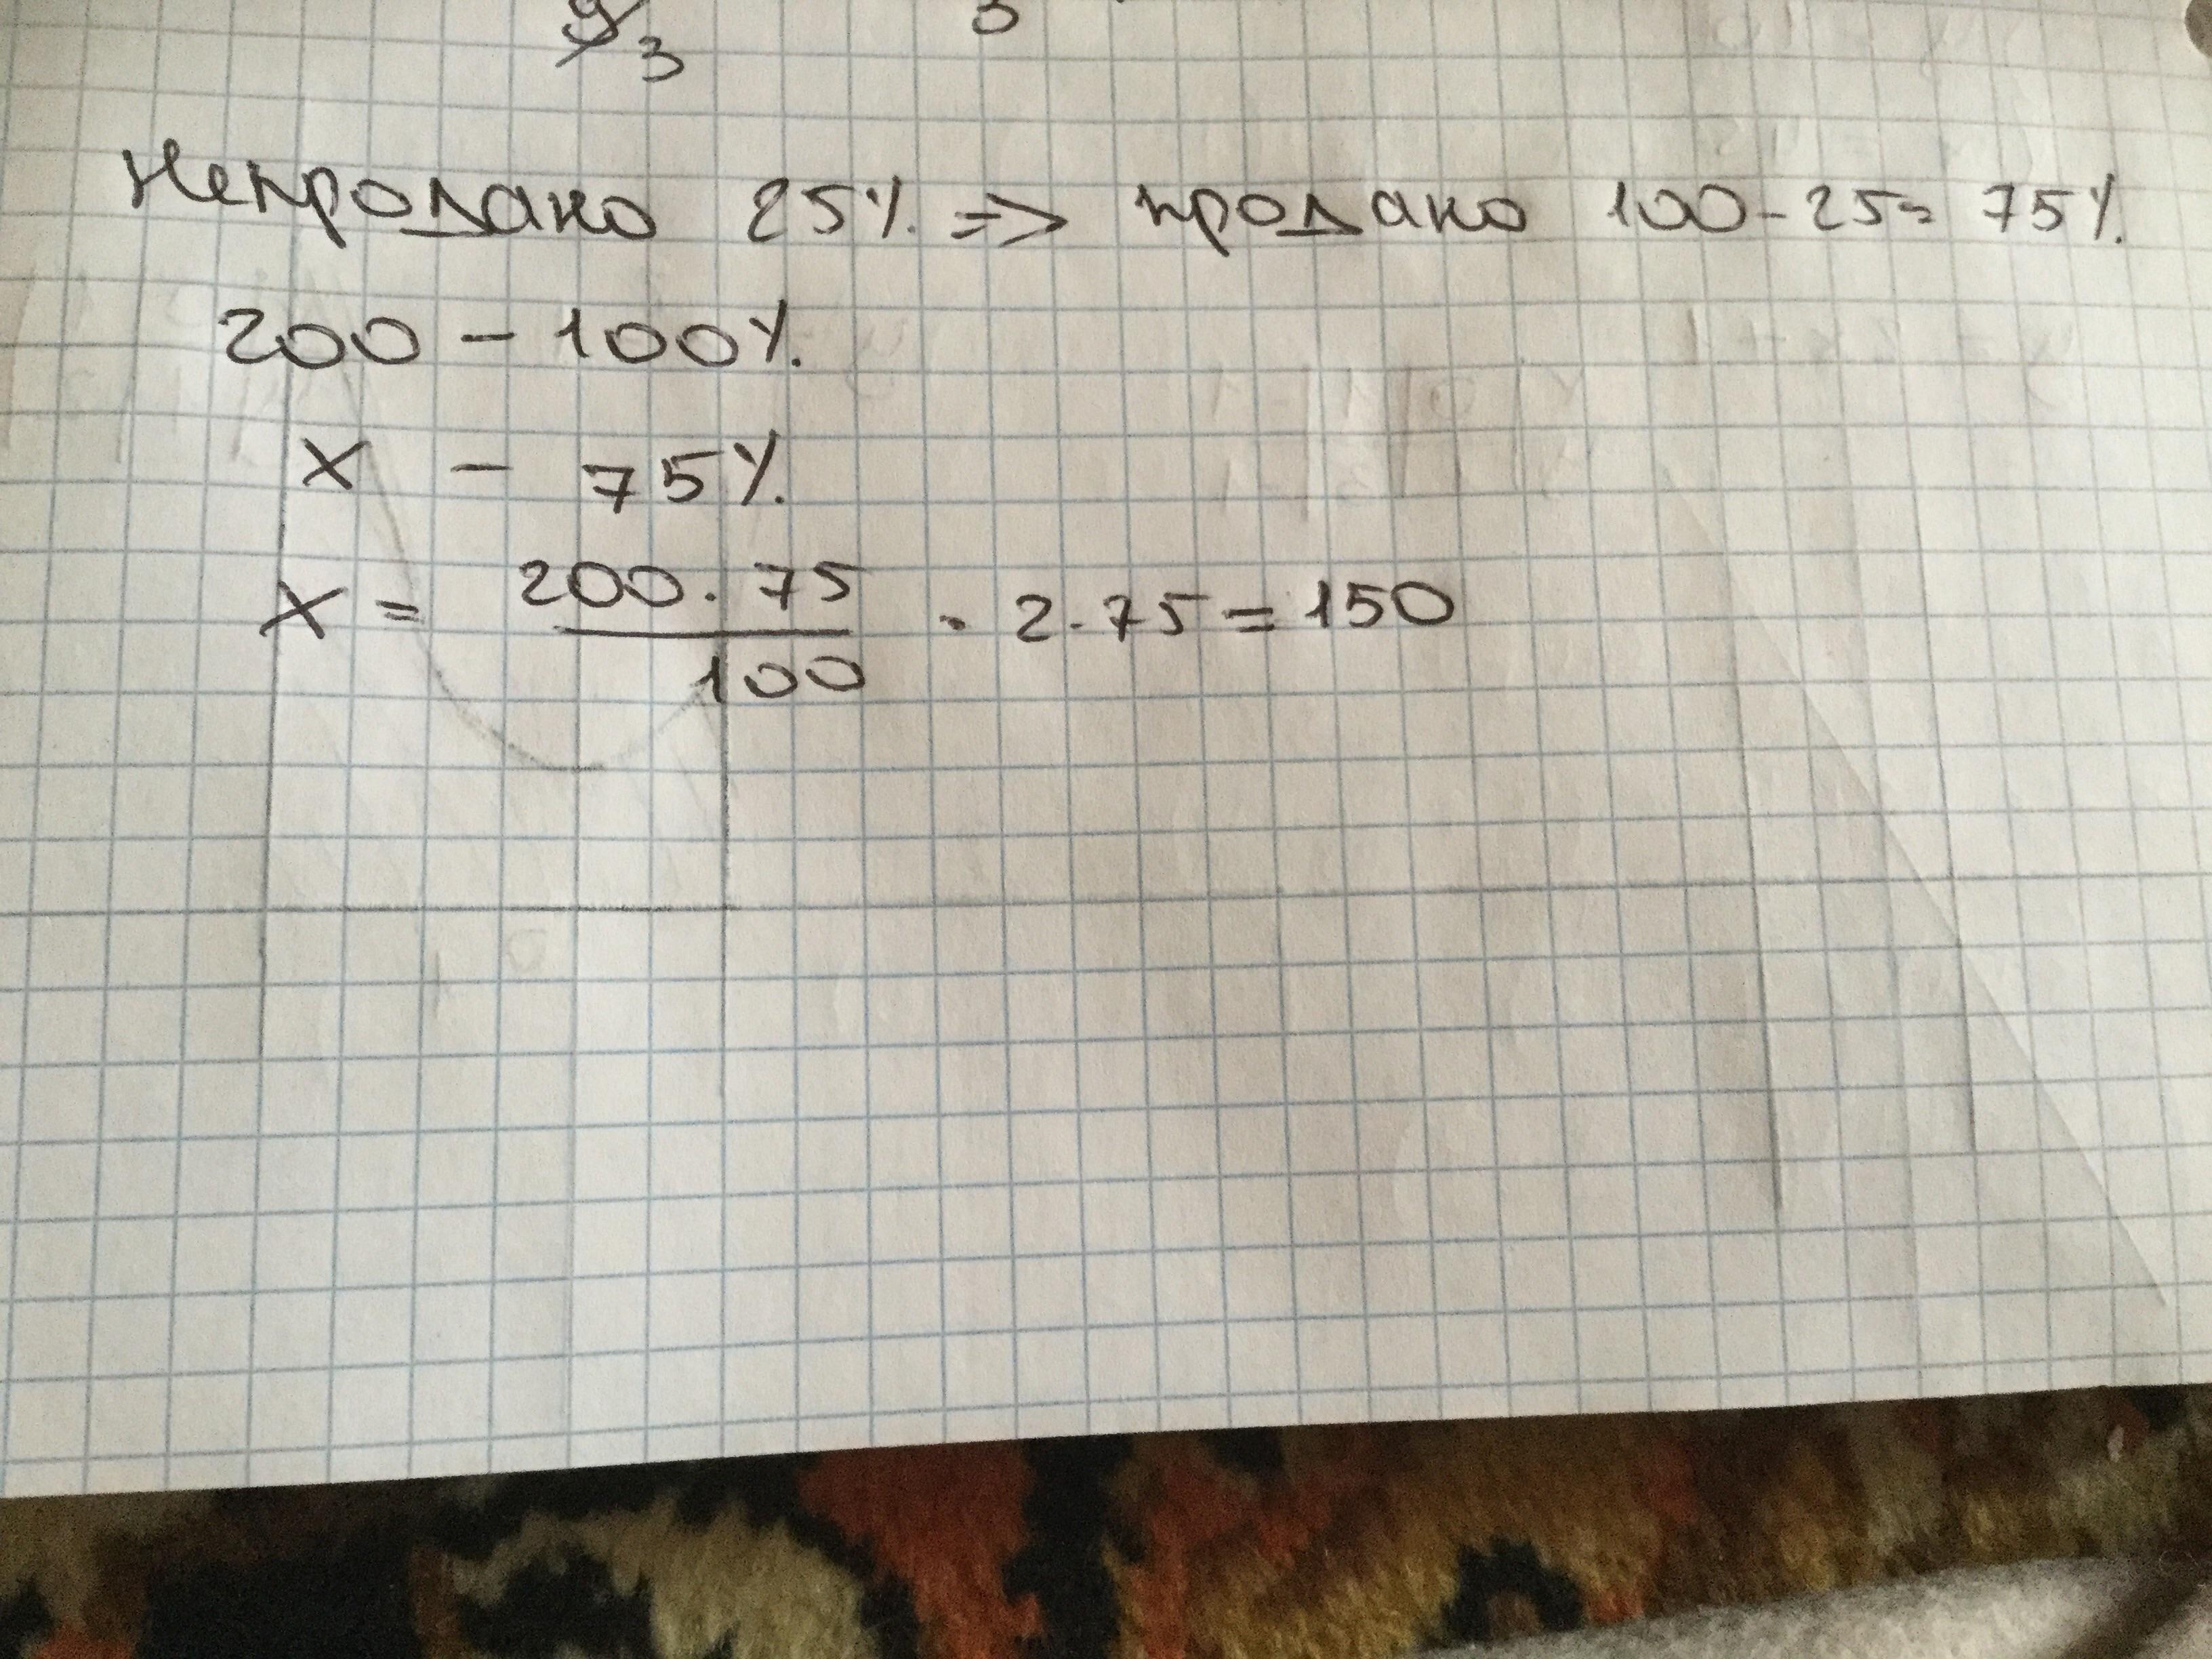 9 3 3
Непродано 25% => продано 100-25= 75%
200 - 100%
x - 75%
x = 200·75/100 · 2·75 = 150